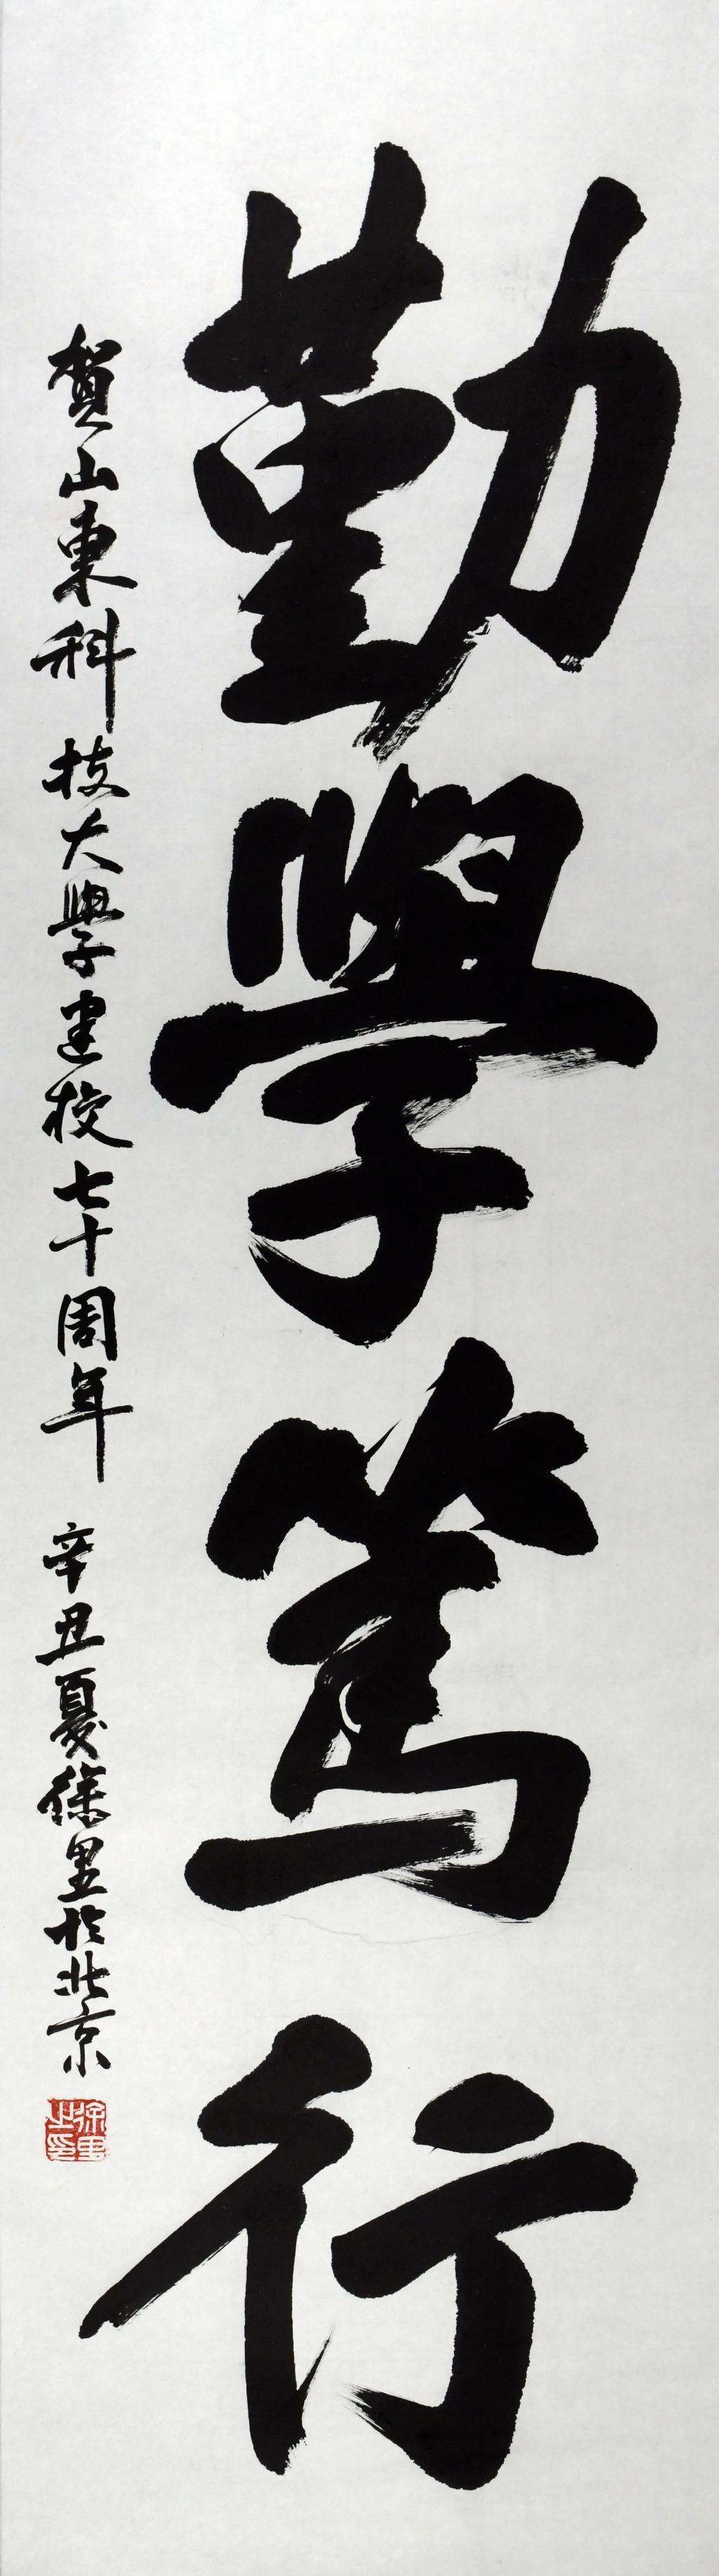 勤學篤行
賀山東科技大學建校七十周年 辛丑夏徐里於北京
徐里之印